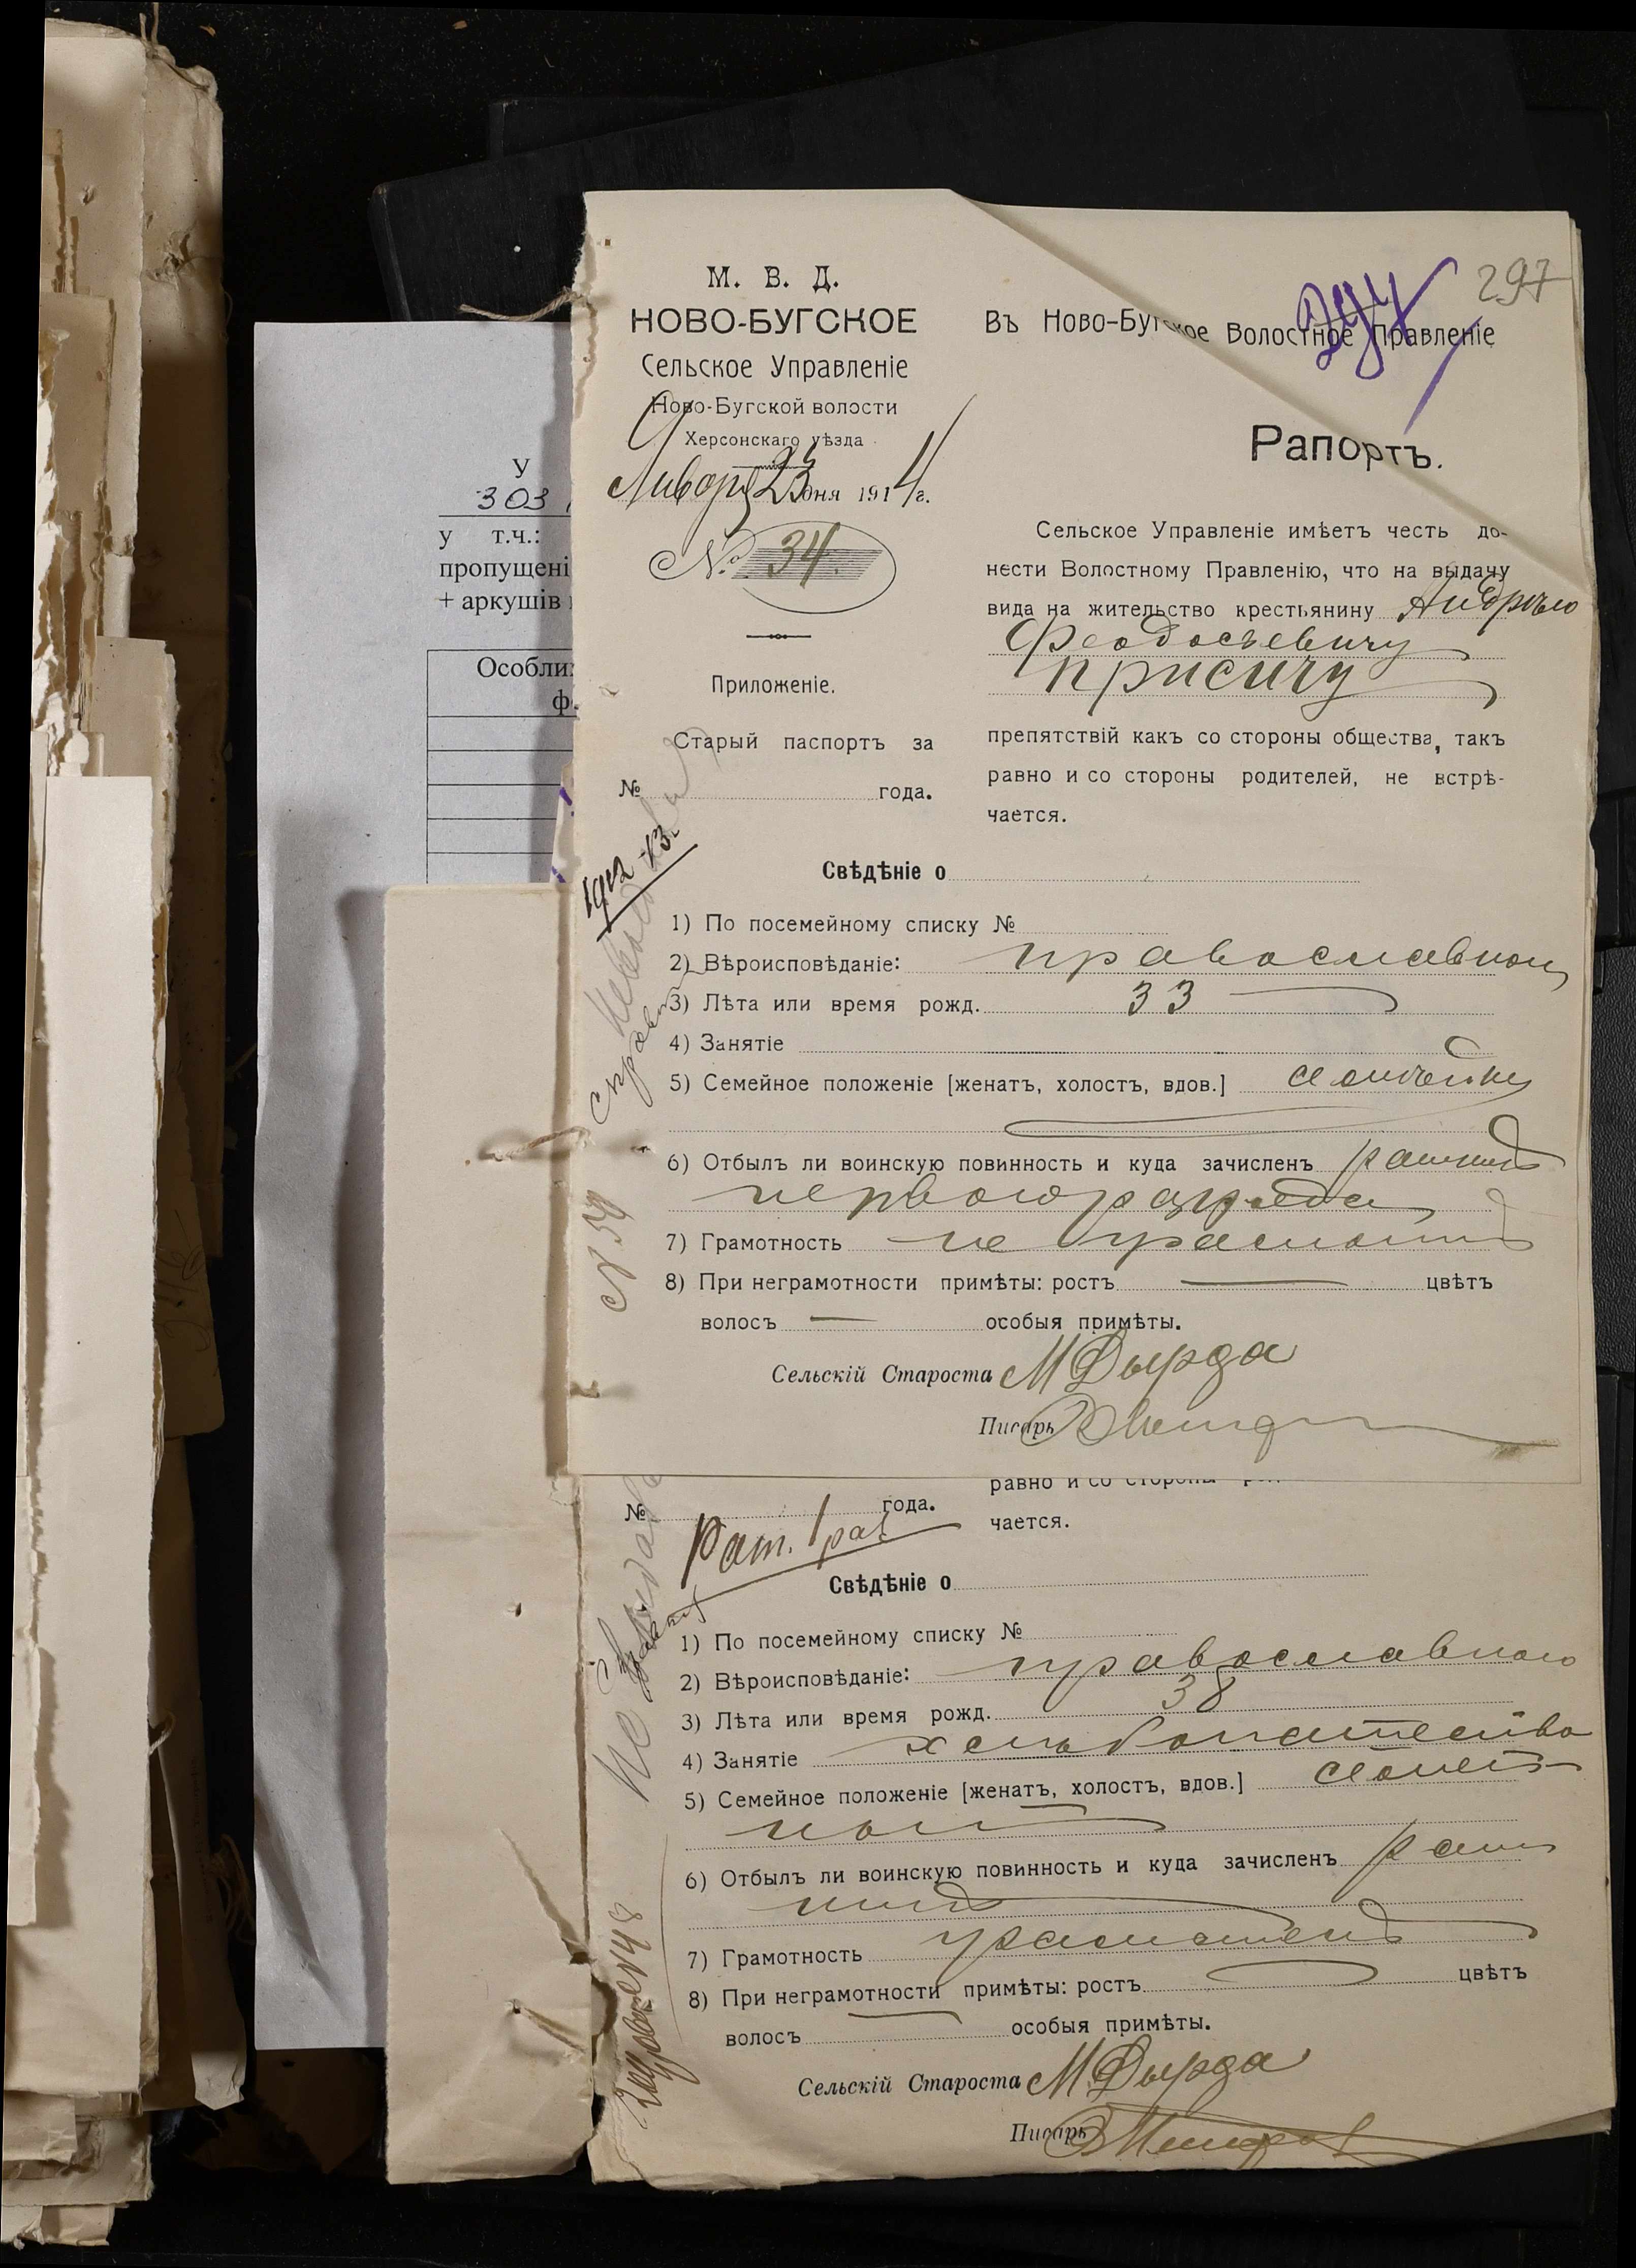 297
М. В. Д.
НОВО-БУГСКОЕ
Сельское Управленіе
Ново-Бугской волости
Херсонскаго уѣзда
Января 23 дня 1914 г.
№ 34
Приложеніе.
Старый паспортъ за
№ года.
Въ Ново-Бугское Волостное Правленіе
Рапортъ.
Сельское Управленіе имѣетъ честь до-
нести Волостному Правленію, что на выдачу
вида на жительство крестьянину Андрѣю
Феодосьевичу
Присичу
препятствій какъ со стороны общества, такъ
равно и со стороны родителей, не встрѣ-
чается.
1912-13
Свѣдѣніе о
1) По посемейному списку №
2) Вѣроисповѣданіе: православнаго
3) Лѣта или время рожд. 33
4) Занятіе
5) Семейное положеніе [женатъ, холостъ, вдов.]
6) Отбылъ ли воинскую повинность и куда зачисленъ ратникъ
перваго разряда
7) Грамотность не грамотный
8) При неграмотности примѣты: ростъ цвѣтъ
волосъ особыя примѣты.
Сельскій Староста М Дырда
Писарь
равно и со стороны
№ года.
чается.
Рат. 1 раз
Свѣдѣніе о
1) По посемейному списку №
2) Вѣроисповѣданіе: православнаго
3) Лѣта или время рожд. 38
4) Занятіе хлѣбопашество
5) Семейное положеніе [женатъ, холостъ, вдов.] семей-
ный
6) Отбылъ ли воинскую повинность и куда зачисленъ рат
никъ
7) Грамотность грамотенъ
8) При неграмотности примѣты: ростъ цвѣтъ
волосъ особыя примѣты.
Сельскій Староста М Дырда
Писарь
У
303
у т.ч.:
пропущені
+ аркушів
Особли
ф